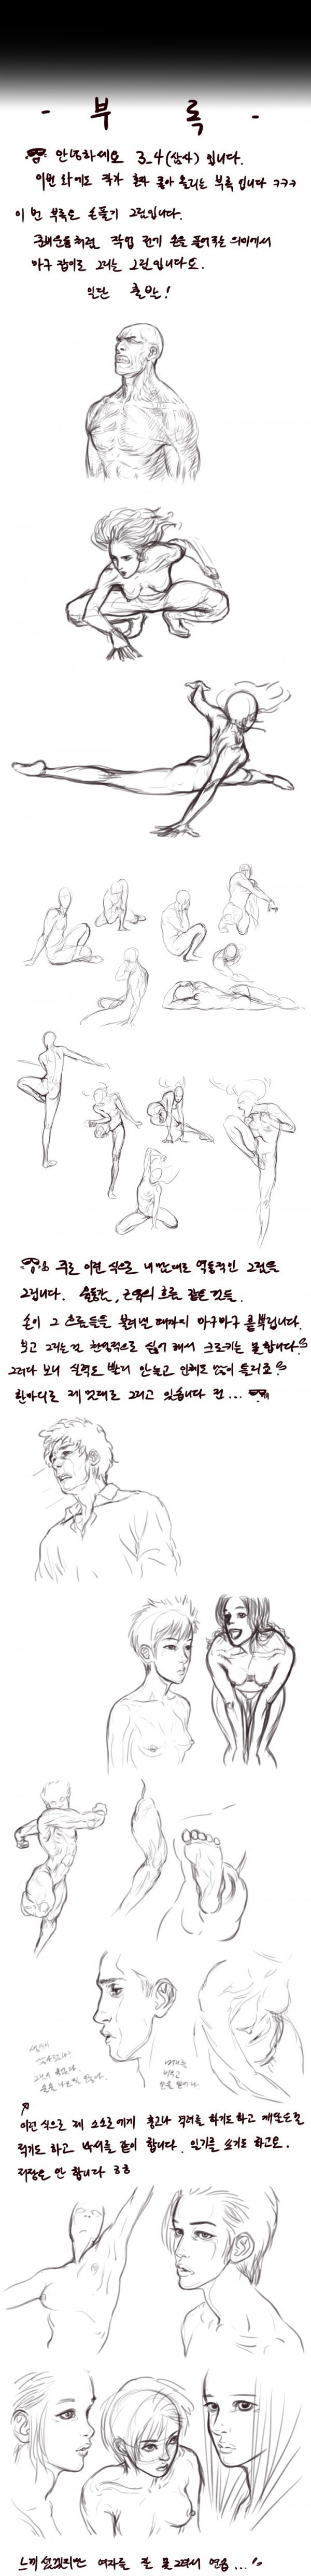 - 부 록 -
안녕하세요 3_4(삼사) 입니다.
이번 화에도 작가 혼자 좋아 올리는 부록 입니다 ㅋㅋㅋ
이 번 부록은 손풀기 그림입니다.
준비운동처럼 작업 전에 손을 풀어주는 의미에서
마구 잡이로 그리는 그림입니다요.
일단 출발!
주로 이런 식으로 내 맘대로 역동적인 그림을
그립니다. 율동감, 근육의 흐름 같은 것들.
손이 그 흐름들을 물려낼 때까지 마구마구 그려봅니다.
보고 그리는 건 천성적으로 싫어 해서 크로키는 못 합니다.
그러다 보니 실력도 빨리 안늘고 인체도 많이 틀리죠?
한마디로 제 멋대로 그리고 있습니다 전...
이런 식으로 제 스스로에게 충고나 격려를 하기도 하고 깨달은걸
적기도 하고 낙서를 같이 합니다. 일기를 쓰기도 하고요.
저장은 안 합니다 ㅎㅎ
느끼셨겠지만 여자를 잘 못 그려서 연습...